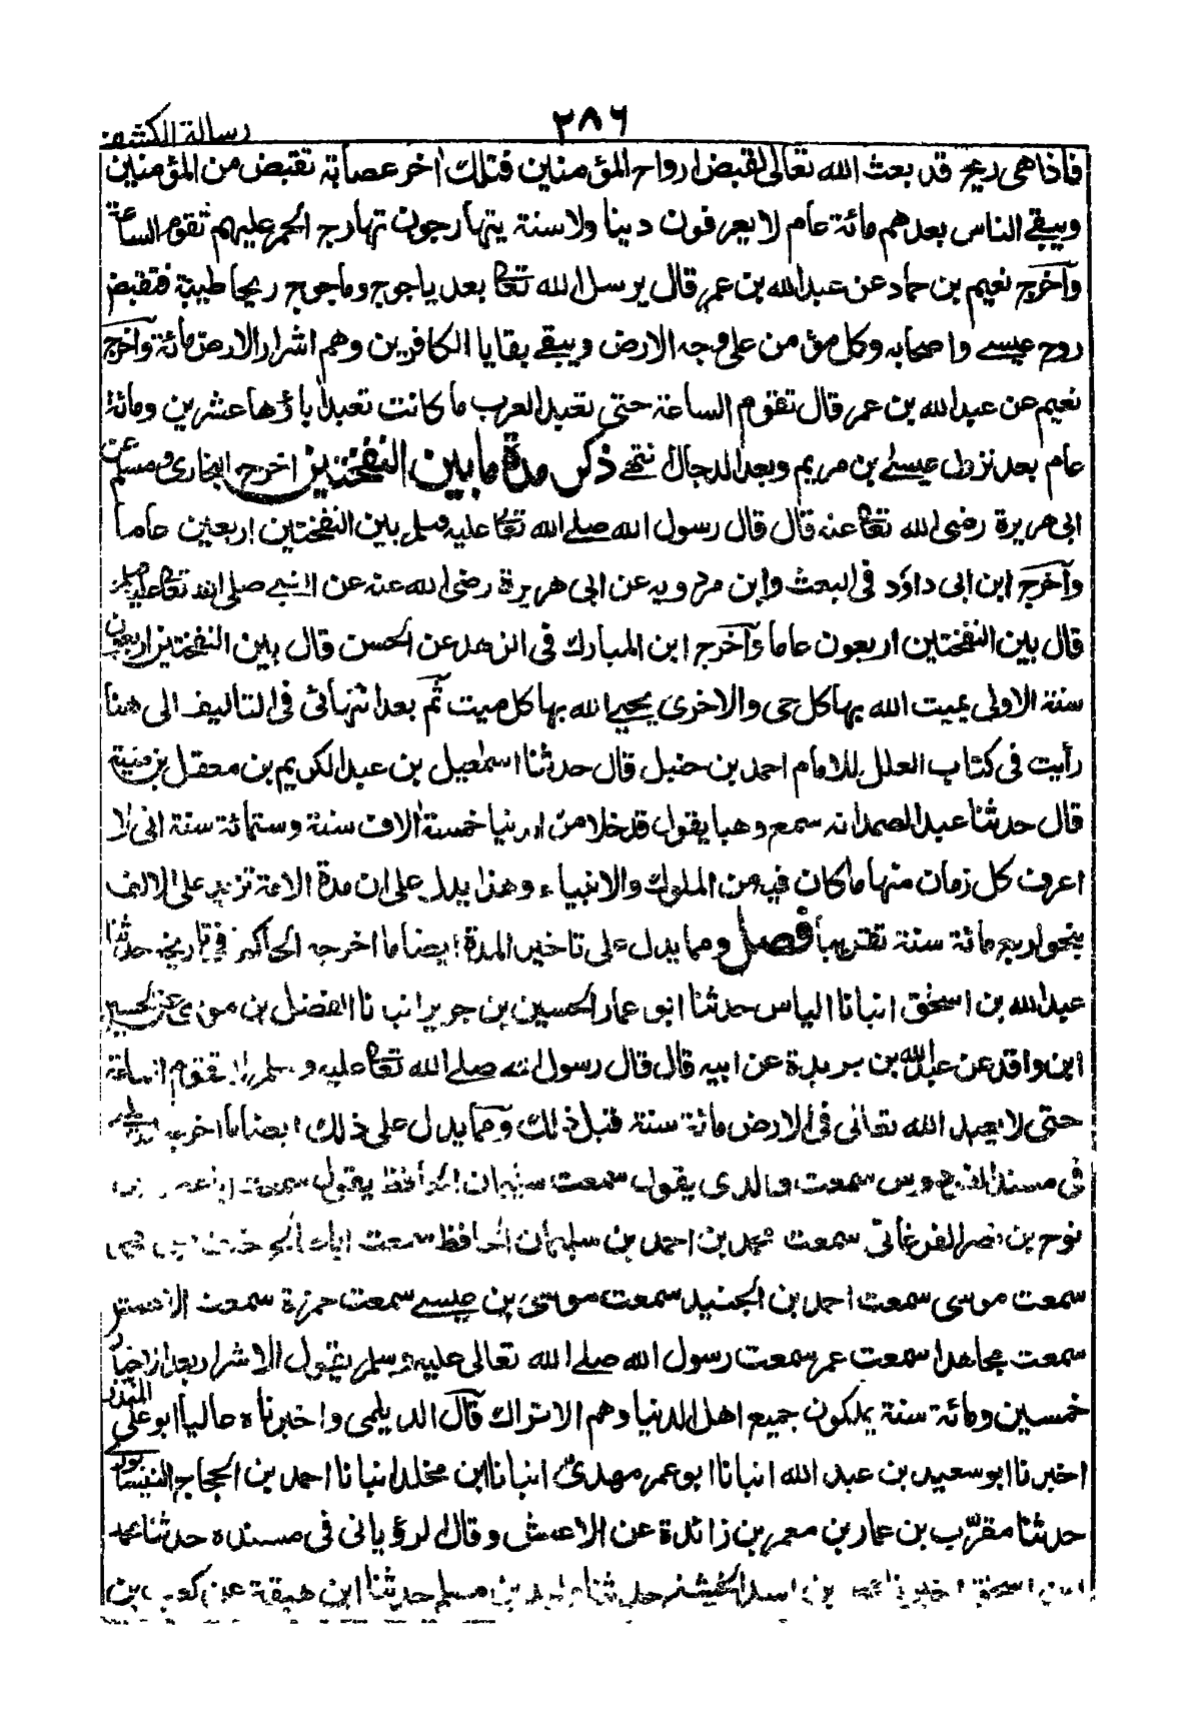 ٢٨٦
رسالة الكشف
فاذا هى ريح قد بعث الله تعالى لقبض ارواح المؤمنين فتلك اٰخر عصابة تقبض من المؤمنين
ويبقے الناس بعدهم مائة عام لا يعرفون دينا ولا سنة يتهارجون تهارج الحمر عليهم تقوم الساعة
وآخرج نعيم بن حماد عن عبدالله بن عمر قال يرسل الله تعالى بعد ياجوج وماجوج ريحا طيبة فتقبض
روح عيسے واصحابه وكل مؤمن على وجه الارض ويبقے بقايا الكافرين وهم اشرار الارض مائة وآخرج
نعيم عن عبدالله بن عمر قال تقوم الساعة حتى تعبد العرب ما كانت تعبد اٰباؤها عشرين ومائة
عام بعد نزول عيسےٰ بن مريم وبعد الدجال انتهے ذكر مدة ما بين النفختين اخرج البخارى ومسلم عن
ابى هريرة رضى الله تعالى عنه قال قال رسول الله صلے الله تعالى عليه وسلم بين النفختين اربعين عاما
وآخرج ابن ابى داؤد فى البعث وابن مردويه عن ابى هريرة رضى الله عنه عن النبے صلى الله تعالى عليه وسلم
قال بين النفختين اربعون عاما وآخرج ابن المبارك فى الزهد عن الحسن قال بين النفختين اربعون
سنة الاولى يميت الله بها كل حى والاخرى يحيے الله بها كل ميت ثم بعد انتهائى فى التاليف الى هنا
رأيت فى كتاب العلل للامام احمد بن حنبل قال حدثنا اسمٰعيل بن عبدالكريم بن معقل بن منبه
قال حدثنا عبدالصمد انه سمع وهبا يقول قد خلا من الدنيا خمسة اٰلاف سنة وستمائة سنة انى لا
اعرف كل زمان منها ما كان فيه من الملوك والانبياء وهذا يدل على ان مدة الامة تزيد على الالف
بنحو اربع مائة سنة تقريبا فصل ومما يدل على تاخير المدة ايضا ما اخرجه الحاكم فى تاريخه حدثنا
عبدالله بن اسحٰق انبانا الياس حدثنا ابو عمار الحسين بن جرير انبانا الفضل بن موسى عن الحسين
ابن واقد عن عبدالله بن بريدة عن ابيه قال قال رسول الله صلے الله تعالى عليه وسلم لا تقوم الساعة
حتى لا يعبد الله تعالى فى الارض مائة سنة قبل ذلك وممّا يدل على ذلك ايضا ما اخرجه الديلمى
فى مسند الفردوس سمعت والدى يقول سمعت سليمان الحافظ يقول سمعت
نوح بن نصر الفرغانى سمعت محمد بن احمد بن سليمان الحافظ سمعت
سمعت موسى سمعت احمد بن الجنيد سمعت موسى بن عيسے سمعت حمزة سمعت الاعمش
سمعت مجاهدا سمعت عمر سمعت رسول الله صلے الله تعالى عليه وسلم يقول الاشرار بعد الاخيار
خمسين ومائة سنة يملكون جميع اهل الدنيا وهم الاتراك قال الديلمى واخبرناه عاليا ابو على المقرئ
اخبرنا ابو سعيد بن عبد الله انبانا ابو عمر مهدى انبانا ابن مخلد انبانا احمد بن الحجاج النيسابورى
حدثنا مقرّب بن عمار بن معمر بن زائدة عن الاعمش وقال الرؤيانى فى مسنده حدثنا محمد
ابن اسحٰق اخبرنا محمد بن اسد الخشنى حدثنا وليد بن مسلم حدثنا ابن هيعة عن كعب بن